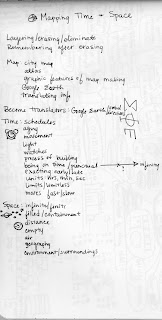 Mapping Time + Space
Layering/erasing/eliminate
Remembering after erasing
Map: city map
atlas
graphic features of map making
Google Earth
translating info
Become Translators: Google Earth
Time: schedules
aging
movement
light
watches
process of building
being on time/punctual
exacting early/late
units: hrs, min, sec
limits/limitless
moves fast/slow
Space: infinite/finite
filled/containment
distance
empty
air
geography
environment/surroundings